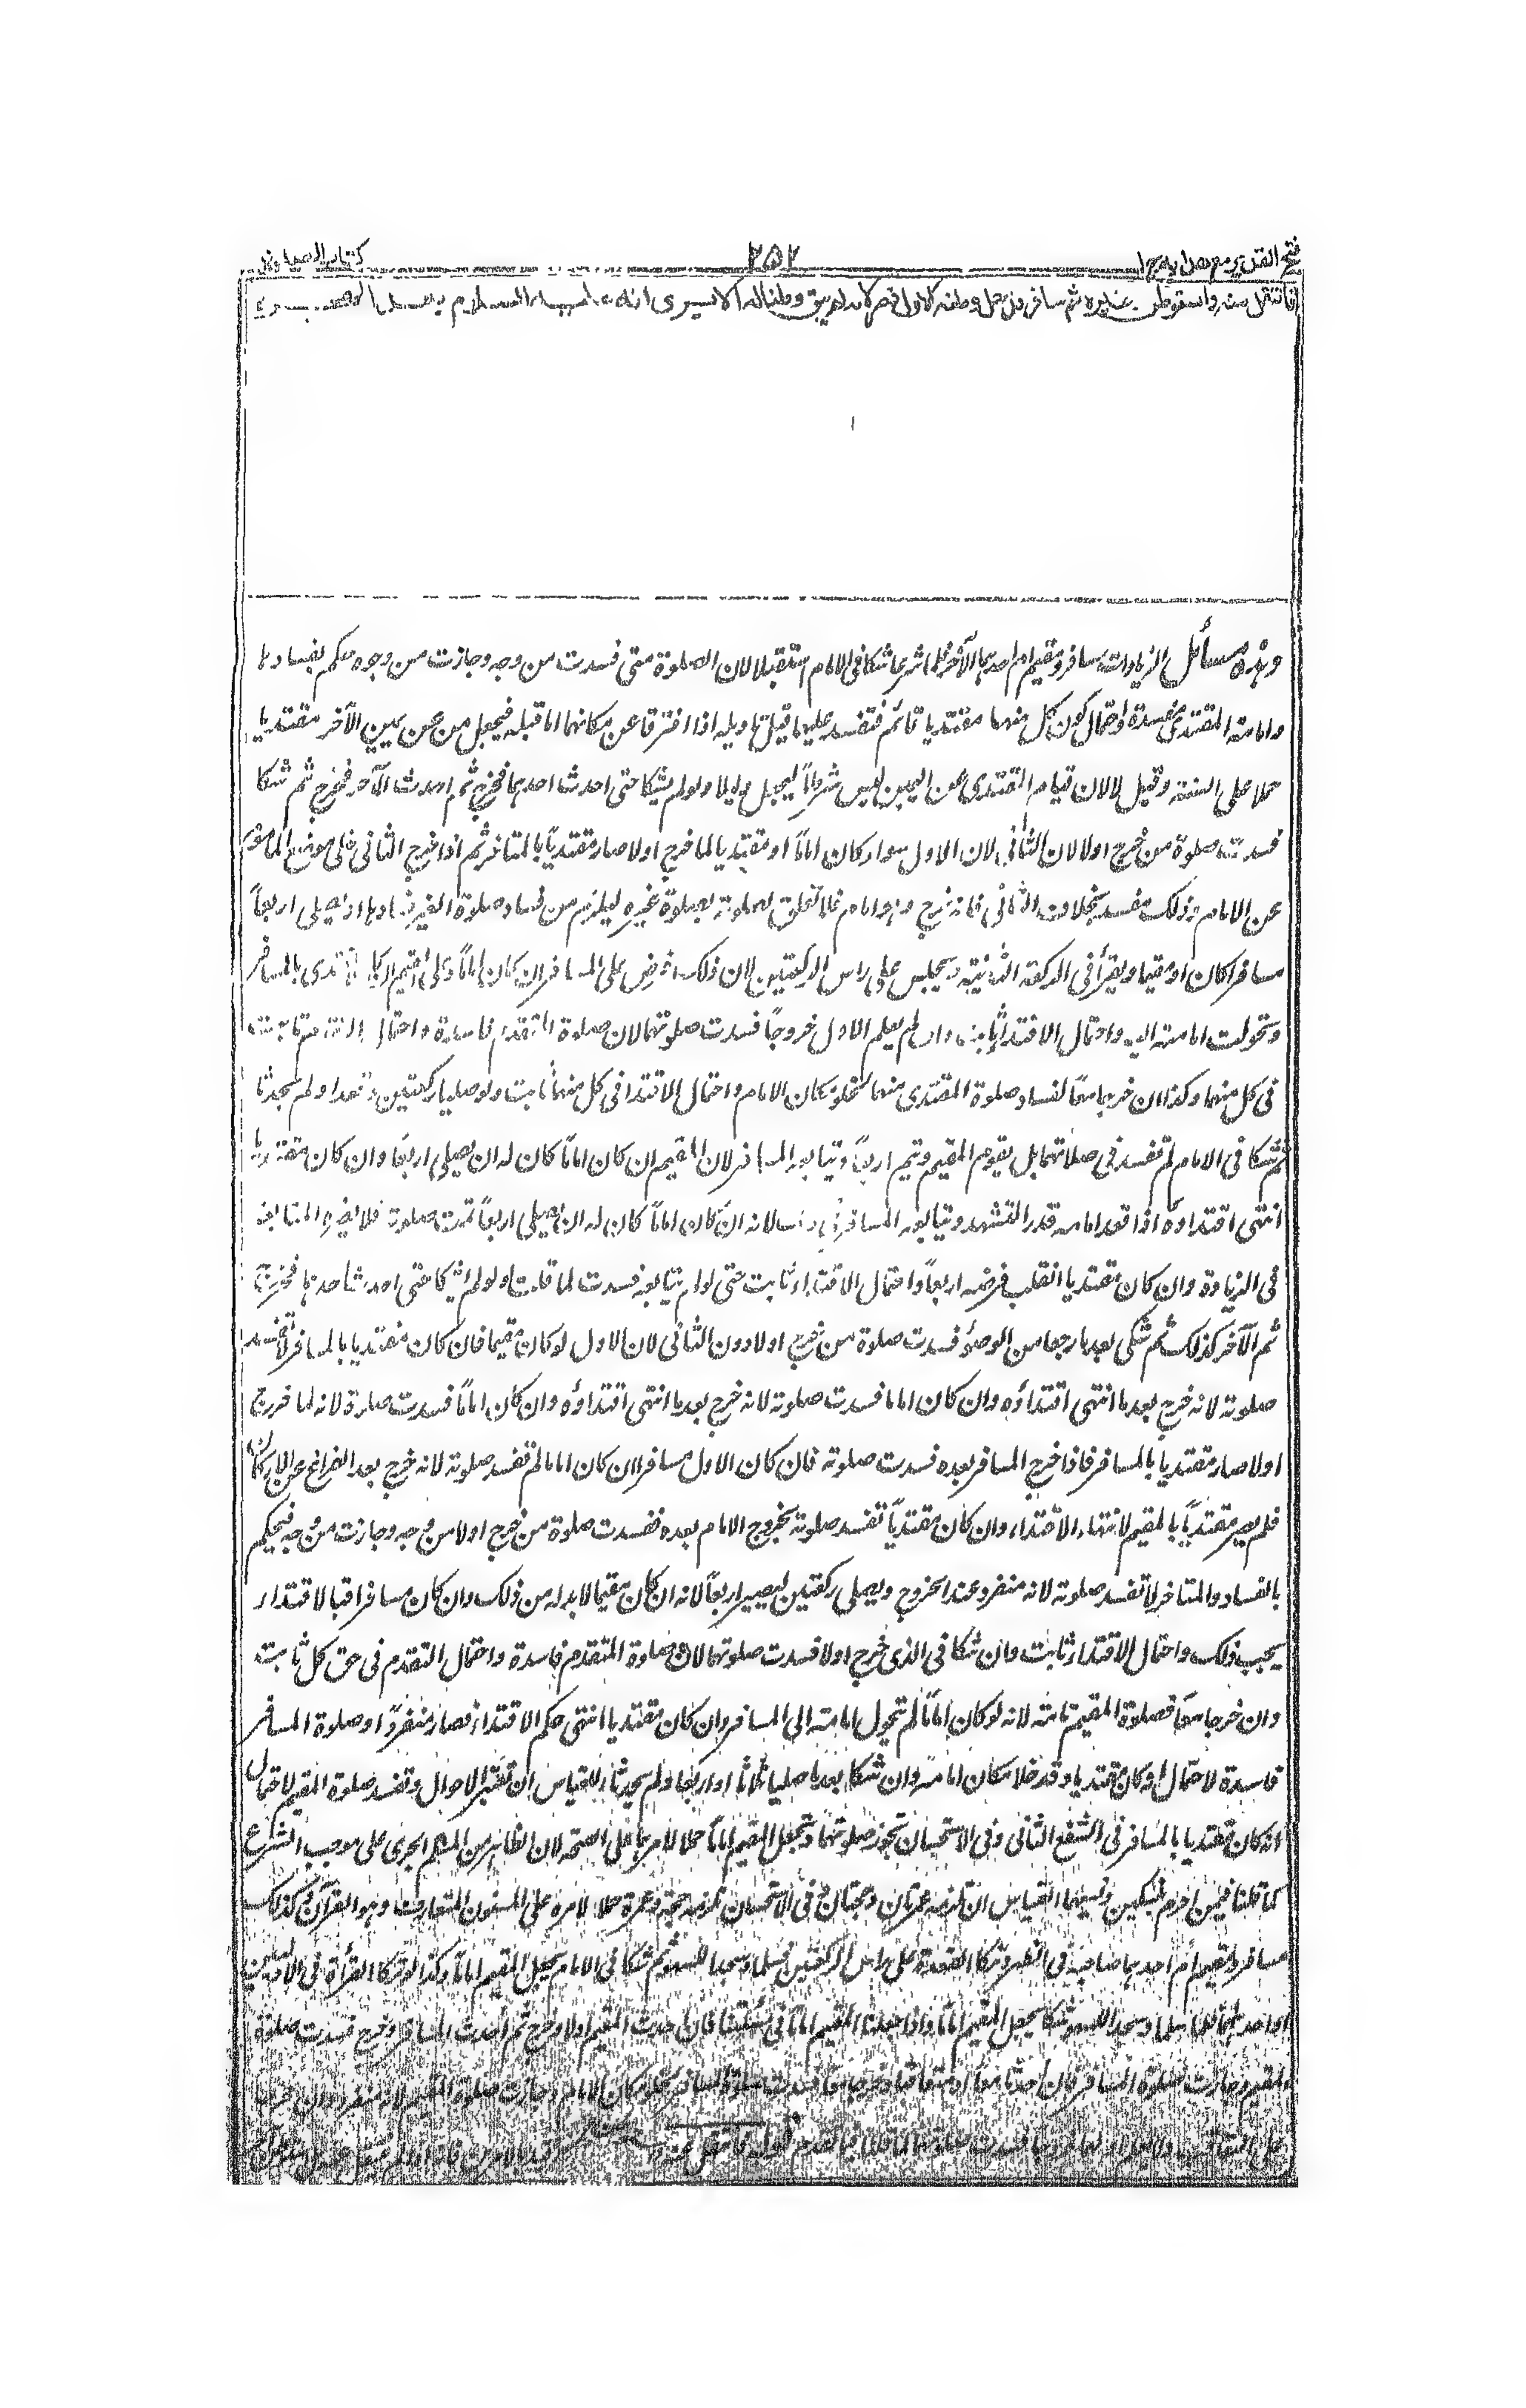 فتح القدير مع هدايه ج ا
٢٥٢
كتاب الصلوة
فانتقل منه واستوطن غيره ثم سافر فدخل وطنه الاول قصر لانه لم يبق وطنا له الا يرى انه عليه السلام بعد الهجرة
وهذه مسائل الزيادات مسافر ومقيم ام احدهما الآخر فلما شرعا شكا فى الامام استقبلا لان الصلوة متى فسدت من وجه وجازت من وجوه حكم بفسادها
وامامة المقتدى مفسدة واحتمال كون كل منهما مقتديا قائم فتفسد عليهما قيل تاويله اذا افترقا عن مكانهما اما قبله فيجعل من عن يمين الآخر مقتديا
حملا على السنة وقيل لا لان قيام المقتدى عن اليمين ليس شرطا ليجعل دليلا ولو لم يشكا حتى احدث احدهما فخرج ثم احدث الآخر فخرج ثم شكا
فسدت صلوة من خرج اولا لا الثانى لان الاول سواء كان اماما او مقتديا لما خرج اولا صار مقتديا بالمتاخر ثم اذا خرج الثانى خلى موضع الماموم
عن الامام وذلك مفسد بخلاف الثانى فانه خرج وهو امام فلا تتعلق صلوته بصلوة غيره ليلزم من فساد صلوة الغير فسادها اذ يصلى اربعا
مسافرا كان او مقيما ويقرأ فى الركعة الثانية ويجلس على راس الركعتين لان ذلك فرض على المسافر ان كان اماما وعلى المقيم اذ كان اقتدى بالمسافر
وتحولت امامته اليه واحتمال الاقتداء ثابت وان لم يعلم الاول خروجا فسدت صلوتهما لان صلوة المتقدم فاسدة واحتمال التقدم ثابت
فى كل منهما وكذا ان خرجا معا لفساد صلوة المقتدى منهما لخلو مكان الامام واحتمال الاقتدا فى كل منهما ثابت ولو صليا ركعتين وقعدا ولم يحدثا
ثم شكا فى الامام لم تفسد فى صلاتهما بل يقوم المقيم ويتم اربعا ويتابعه المسافر لان المقيم ان كان اماما كان له ان يصلى اربعا وان كان مقتديا
انتهى اقتداؤه اذا قعد امامه قدر التشهد ويتابعه المسافر لانه ان كان اماما كان له ان يصلى اربعا تمت صلوته فلا يضره المتابعة
فى الزيادة وان كان مقتديا انقلب فرضه اربعا واحتمال الاقتداء ثابت حتى لو لم يتابعه فسدت لما قلت ولو لم يشكا حتى احدث احدهما فخرج
ثم الآخر كذلك ثم شكى بعد ما رجعا من الوضوء فسدت صلوة من خرج اولا دون الثانى لان الاول لو كان مقيما فان كان مقتديا بالمسافر لا تفسد
صلوته لانه خرج بعد ما انتهى اقتداؤه وان كان اماما فسدت صلوته لانه خرج بعد ما انتهى اقتداؤه وان كان اماما فسدت صلوة لانه لما خرج
اولا صار مقتديا بالمسافر فاذا خرج المسافر بعده فسدت صلوته فان كان الاول مسافرا ان كان اماما لم تفسد صلوته لانه خرج بعد الفراغ عن الاركان
فلم يصر مقتديا بالمقيم لانتهاء الاقتداء وان كان مقتديا تفسد صلوته بخروج الامام بعده ففسدت صلوة من خرج اولا من وجه وجازت من وجه فيحكم
بالفساد والمتاخر لا تفسد صلوته لانه منفرد عند الخروج ويصلى ركعتين ليصير اربعا لانه ان كان مقيما لا بد له من ذلك وان كان مسافرا فبالاقتداء
يجب ذلك واحتمال الاقتداء ثابت وان شكا فى الذى خرج اولا فسدت صلوتهما لان صلوة المتقدم فاسدة واحتمال التقدم فى حق كل ثابت
وان خرجا معا فصلوة المقيم تامة لانه لو كان اماما لم تحول امامته الى المسافر وان كان مقتديا انتهى حكم الاقتداء فصار منفردا وصلوة المسافر
فاسدة لاحتمال انه كان مقتديا وقد خلا مكان امامه وان شكا بعد ما صليا ثلاثا او اربعا ولم يحدثا فالقياس ان تعتبر الاحوال وتفسد صلوة المقيم لاحتمال
انه كان مقتديا بالمسافر فى الشفع الثانى وفى الاستحسان تجوز صلوتهما ويجعل المقيم اماما حملا لامرهما على الصحة لان الظاهر من المسلم الجرى على موجب الشرع
كما قلنا فيمن احرم بنسكين ونسيهما القياس ان تلزمه عمرتان وحجتان وفى الاستحسان تلزمه حجة وعمرة حملا لامره على المسنون المتعارف وهو القران وكذلك
مسافر ومقيم ام احدهما صاحبه فى الظهر وتركا القعدة على راس الركعتين فسلما وسجدا للسهو ثم شكا فى الامام يجعل المقيم اماما وكذا لو تركا القرأة فى الاوليين
او احدهما فلما سلما وسجدا للسهو شكا يجعل المقيم اماما واذا جعلنا المقيم اماما فى مسئلتنا فان احدث المقيم اولا وخرج ثم احدث المسافر وخرج فسدت صلوة
المقيم وجازت صلوة المسافر فان احدثا معا او متعاقبا وخرجا معا فسدت صلوة المسافر لخلو مكان الامام وجازت صلوة المقيم لانه منفرد وان خرجا